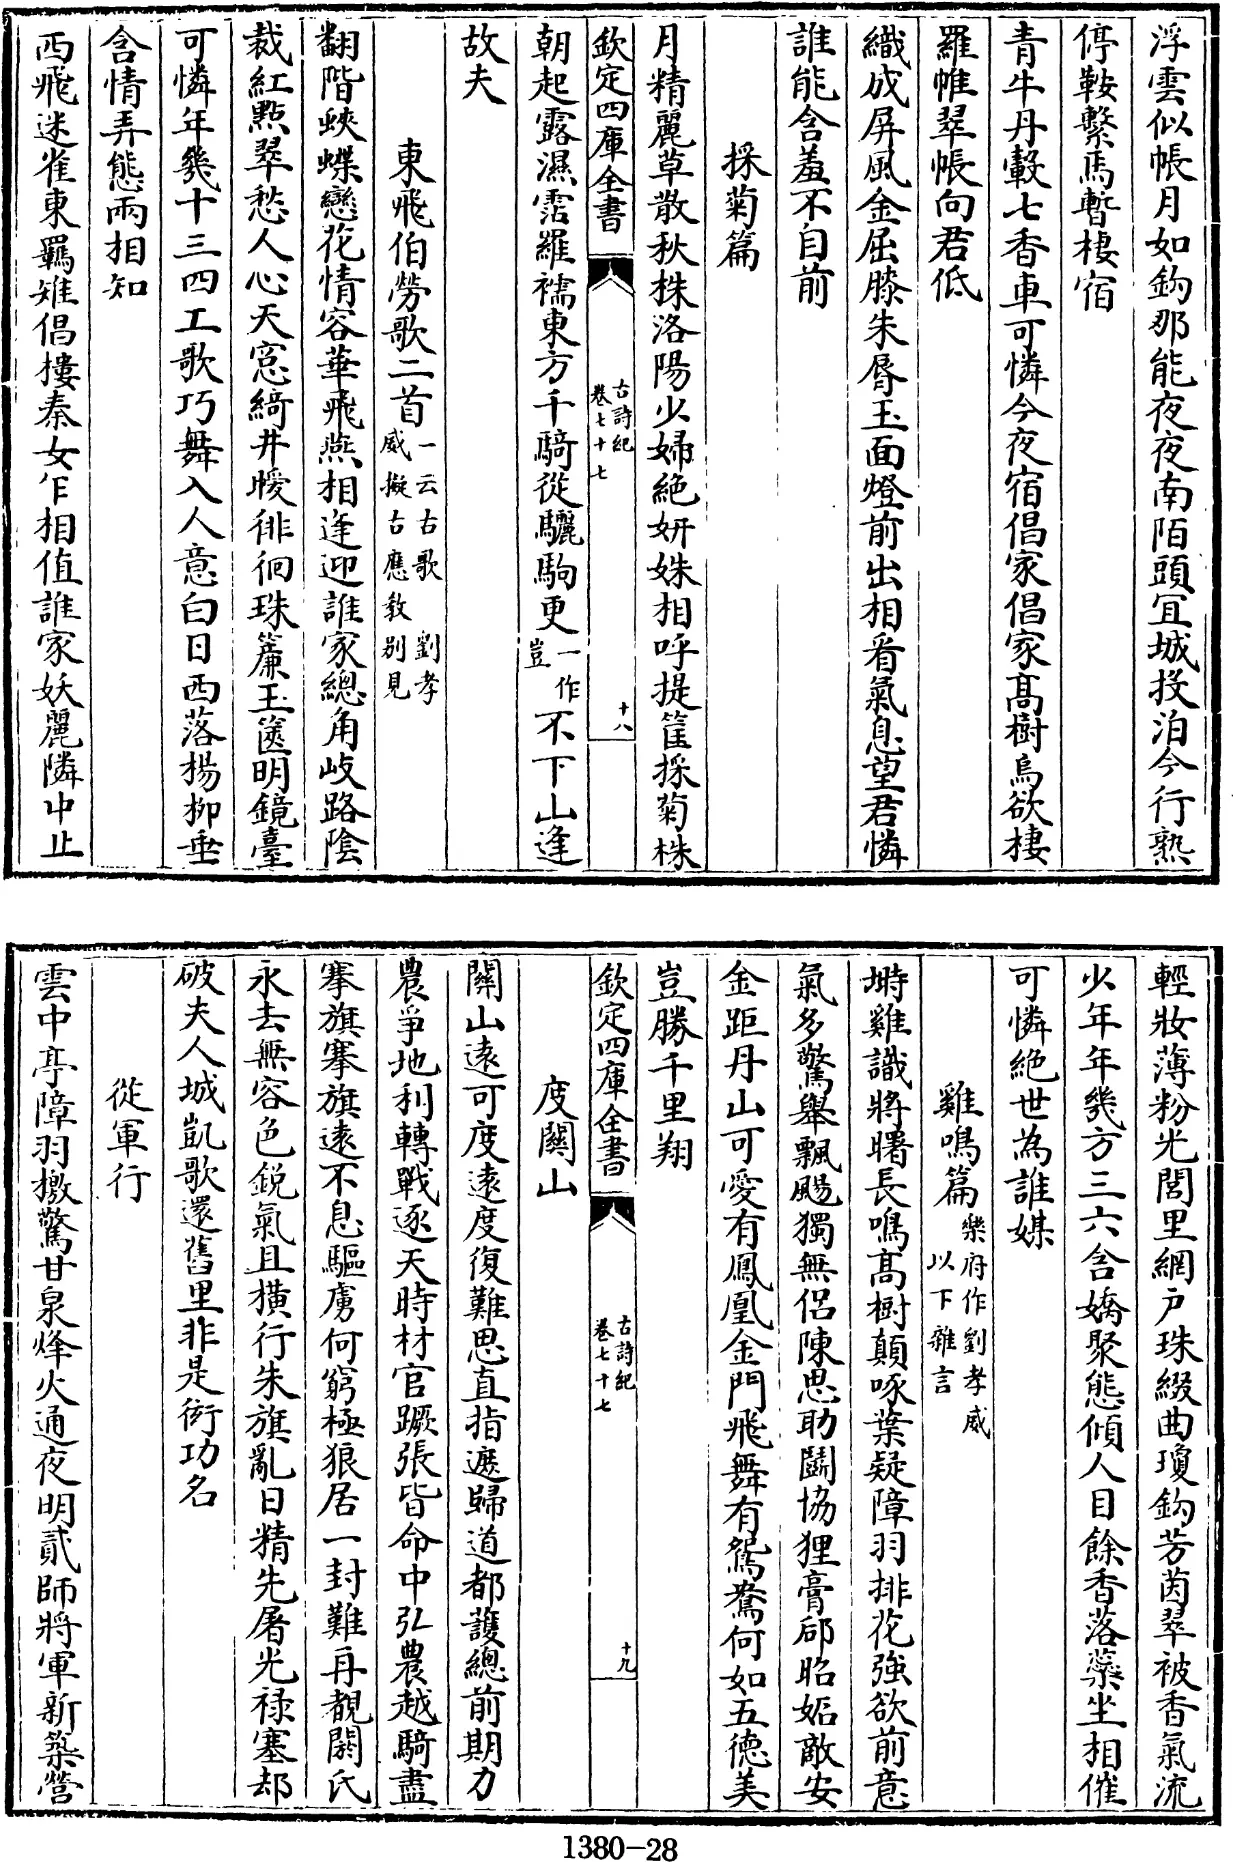 浮雲似帳月如鈎那能夜夜南陌頭宜城投泊今行熟
停鞍繫馬暫棲宿
青牛丹轂七香車可憐今夜宿倡家倡家髙樹烏欲棲
羅帷翠帳向君低
織成屏風金屈膝朱脣玉面燈前出相看氣息望君憐
誰能含羞不自前
採菊篇
月精麗草散秋株洛陽少婦絶妍姝相呼提筐採菊株
欽定四庫全書
古詩紀
卷七十七
十八
朝起露濕霑羅襦東方千騎從驪駒更一作豈不下山逢
故夫
東飛伯勞歌二首一云古歌 劉孝威擬古應教別見
翻階蛺蝶戀花情容華飛燕相逢迎誰家總角岐路陰
裁紅點翠愁人心天窓綺井曖徘徊珠簾玉篋明鏡臺
可憐年幾十三四工歌巧舞入人意白日西落楊柳垂
含情弄態兩相知
西飛迷雀東羈雉倡樓秦女乍相值誰家妖麗隣中止
輕妝薄粉光閭里網戶珠綴曲瓊鈎芳茵翠被香氣流
少年年幾方三六含嬌聚態傾人目餘香落蘂坐相催
可憐絶世為誰媒
雞鳴篇樂府作劉孝威以下雜言
塒雞識將曙長鳴髙樹顛啄葉疑障羽排花強欲前意
氣多驚舉飄颺獨無侣陳思助鬪協狸膏郈昭妬敵安
金距丹山可愛有鳳凰金門飛舞有鴛鴦何如五德美
豈勝千里翔
欽定四庫全書
古詩紀
卷七十七
十九
度關山
關山遠可度遠度復難思直指遮歸道都䕶總前期力
農爭地利轉戰逐天時材官蹶張皆命中弘農越騎盡
搴旗搴旗遠不息驅虜何窮極狼居一封難再覩閼氏
永去無容色銳氣且横行朱旗亂日精先屠光禄塞却
破夫人城凱歌還舊里非是衒功名
從軍行
雲中亭障羽檄驚甘泉烽火通夜明貳師將軍新築營
1380-28